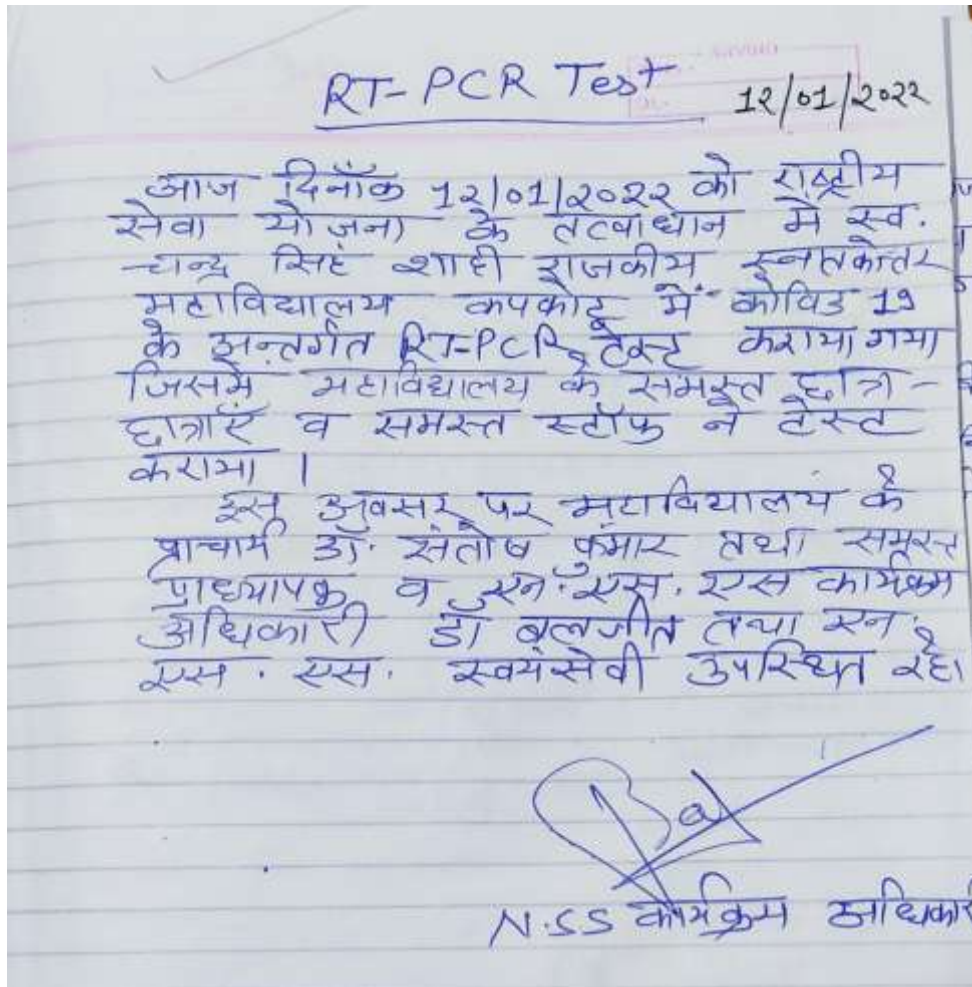 RT-PCR Test
12/01/2022
आज दिनाँक 12/01/2022 को राष्ट्रीय
सेवा योजना के तत्वाधान में स्व.
चन्द्र सिंह शाही राजकीय स्नातकोत्तर
महाविद्यालय कपकोट में कोविड 19
के अन्तर्गत RT-PCR टेस्ट कराया गया
जिसमें महाविद्यालय के समस्त छात्र-
छात्राएं व समस्त स्टॉफ ने टेस्ट
कराया ।
इस अवसर पर महाविद्यालय के
प्राचार्य डॉ. संतोष कुमार तथा समस्त
प्राध्यापक व एन.एस.एस कार्यक्रम
अधिकारी डॉ बलजीत तथा एन.
एस. एस. स्वयंसेवी उपस्थित रहे।
N.SS कार्यक्रम अधिकारी